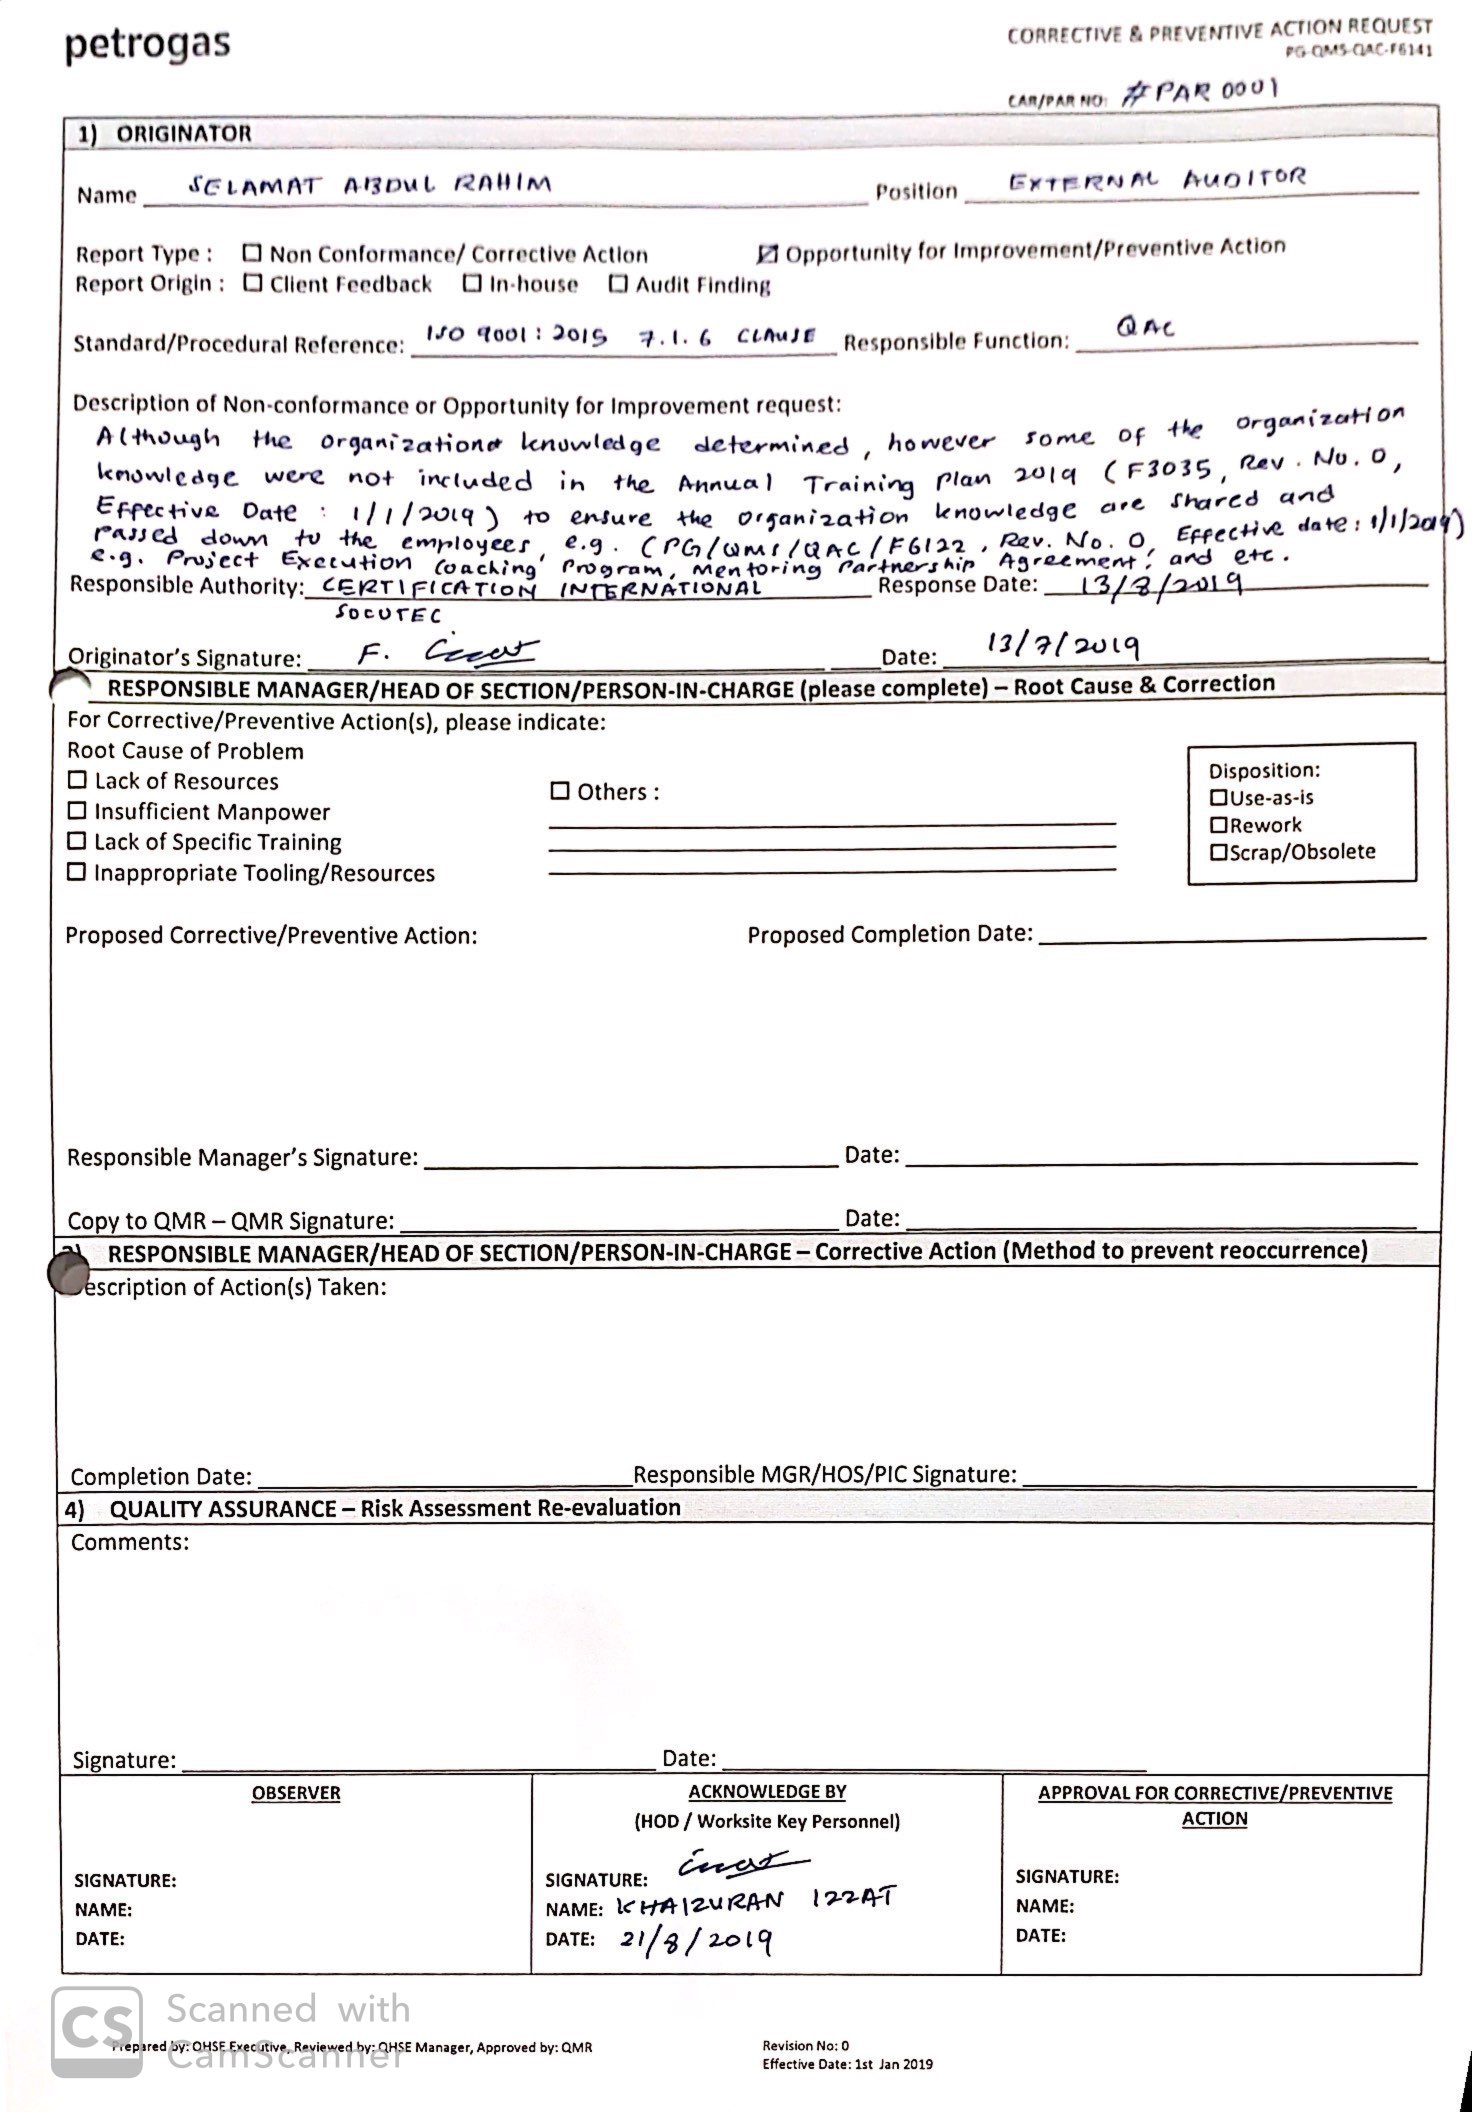 petrogas
CORRECTIVE & PREVENTIVE ACTION REQUEST
PG-QMS-QAC-F6141
CAR/PAR NO: #PAR 0001
1) ORIGINATOR
Name SELAMAT ABDUL RAHIM Position EXTERNAL AUDITOR
Report Type : ☐ Non Conformance/ Corrective Action ☑ Opportunity for Improvement/Preventive Action
Report Origin : ☐ Client Feedback ☐ In-house ☐ Audit Finding
Standard/Procedural Reference: ISO 9001:2015 7.1.6 CLAUSE Responsible Function: QAC
Description of Non-conformance or Opportunity for Improvement request:
Although the organization knowledge determined, however some of the organization
knowledge were not included in the Annual Training Plan 2019 (F3035, Rev. No. 0,
Effective Date : 1/1/2019) to ensure the organization knowledge are shared and
passed down to the employees, e.g. (PG/QMS/QAC/F6122, Rev. No. 0, Effective date: 1/1/2019)
e.g. Project Execution Coaching Program, Mentoring Partnership Agreement, and etc.
Responsible Authority: CERTIFICATION INTERNATIONAL Response Date: 13/8/2019
SOCOTEC
Originator's Signature: F. Date: 13/7/2019
RESPONSIBLE MANAGER/HEAD OF SECTION/PERSON-IN-CHARGE (please complete) – Root Cause & Correction
For Corrective/Preventive Action(s), please indicate:
Root Cause of Problem
☐ Lack of Resources
☐ Others :
☐ Insufficient Manpower
☐ Lack of Specific Training
☐ Inappropriate Tooling/Resources
Disposition:
☐Use-as-is
☐Rework
☐Scrap/Obsolete
Proposed Corrective/Preventive Action: Proposed Completion Date:
Responsible Manager's Signature: Date:
Copy to QMR – QMR Signature: Date:
RESPONSIBLE MANAGER/HEAD OF SECTION/PERSON-IN-CHARGE – Corrective Action (Method to prevent reoccurrence)
escription of Action(s) Taken:
Completion Date: Responsible MGR/HOS/PIC Signature:
4) QUALITY ASSURANCE – Risk Assessment Re-evaluation
Comments:
Signature: Date:
OBSERVER
SIGNATURE:
NAME:
DATE:
ACKNOWLEDGE BY
(HOD / Worksite Key Personnel)
SIGNATURE:
NAME: KHAIZURAN IZZAT
DATE: 21/8/2019
APPROVAL FOR CORRECTIVE/PREVENTIVE
ACTION
SIGNATURE:
NAME:
DATE:
CS Scanned with
CamScanner
Prepared by: QHSE Executive, Reviewed by: QHSE Manager, Approved by: QMR
Revision No: 0
Effective Date: 1st Jan 2019